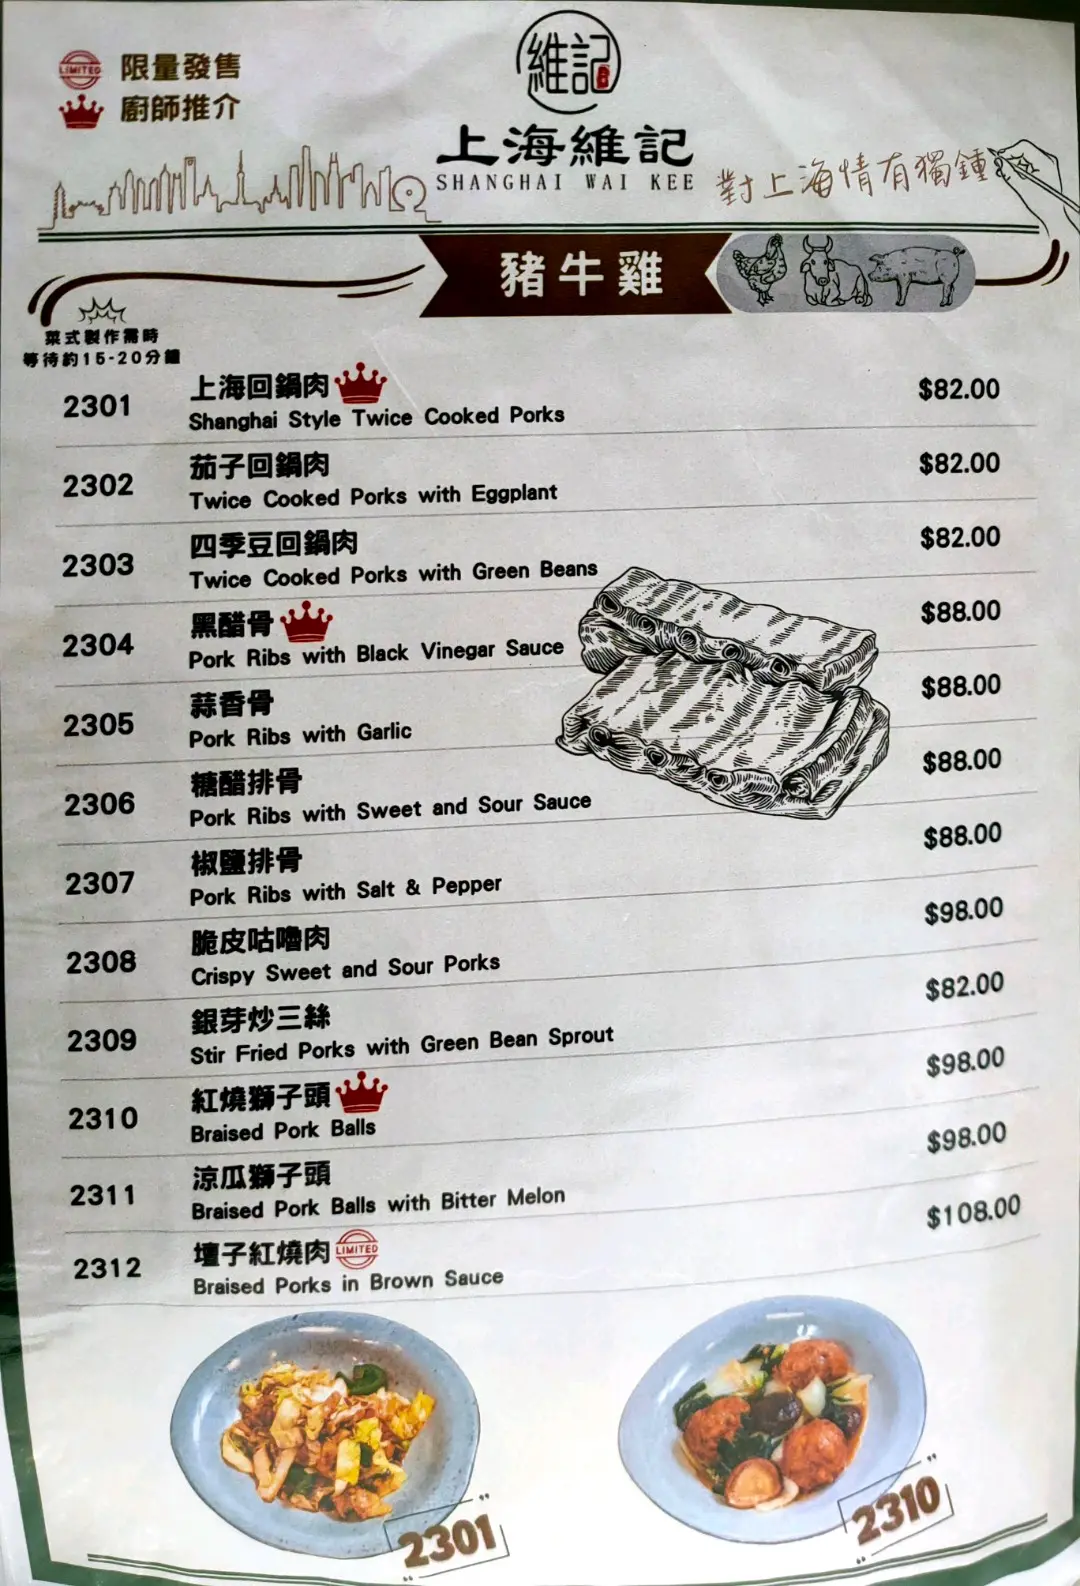 LIMITED 限量發售
廚師推介
維記
上海維記
SHANGHAI WAI KEE
對上海情有獨鍾
豬牛雞
菜式製作需時
等待約15-20分鐘
2301 上海回鍋肉 $82.00
Shanghai Style Twice Cooked Porks
2302 茄子回鍋肉 $82.00
Twice Cooked Porks with Eggplant
2303 四季豆回鍋肉 $82.00
Twice Cooked Porks with Green Beans
2304 黑醋骨 $88.00
Pork Ribs with Black Vinegar Sauce
2305 蒜香骨 $88.00
Pork Ribs with Garlic
2306 糖醋排骨 $88.00
Pork Ribs with Sweet and Sour Sauce
2307 椒鹽排骨 $88.00
Pork Ribs with Salt & Pepper
2308 脆皮咕嚕肉 $98.00
Crispy Sweet and Sour Porks
2309 銀芽炒三絲 $82.00
Stir Fried Porks with Green Bean Sprout
2310 紅燒獅子頭 $98.00
Braised Pork Balls
2311 涼瓜獅子頭 $98.00
Braised Pork Balls with Bitter Melon
2312 壇子紅燒肉 LIMITED $108.00
Braised Porks in Brown Sauce
2301
2310